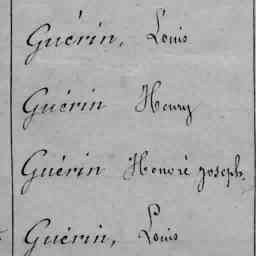 Guérin, Louis
Guérin Henry
Guérin Honoré Joseph.
Guérin, Louis